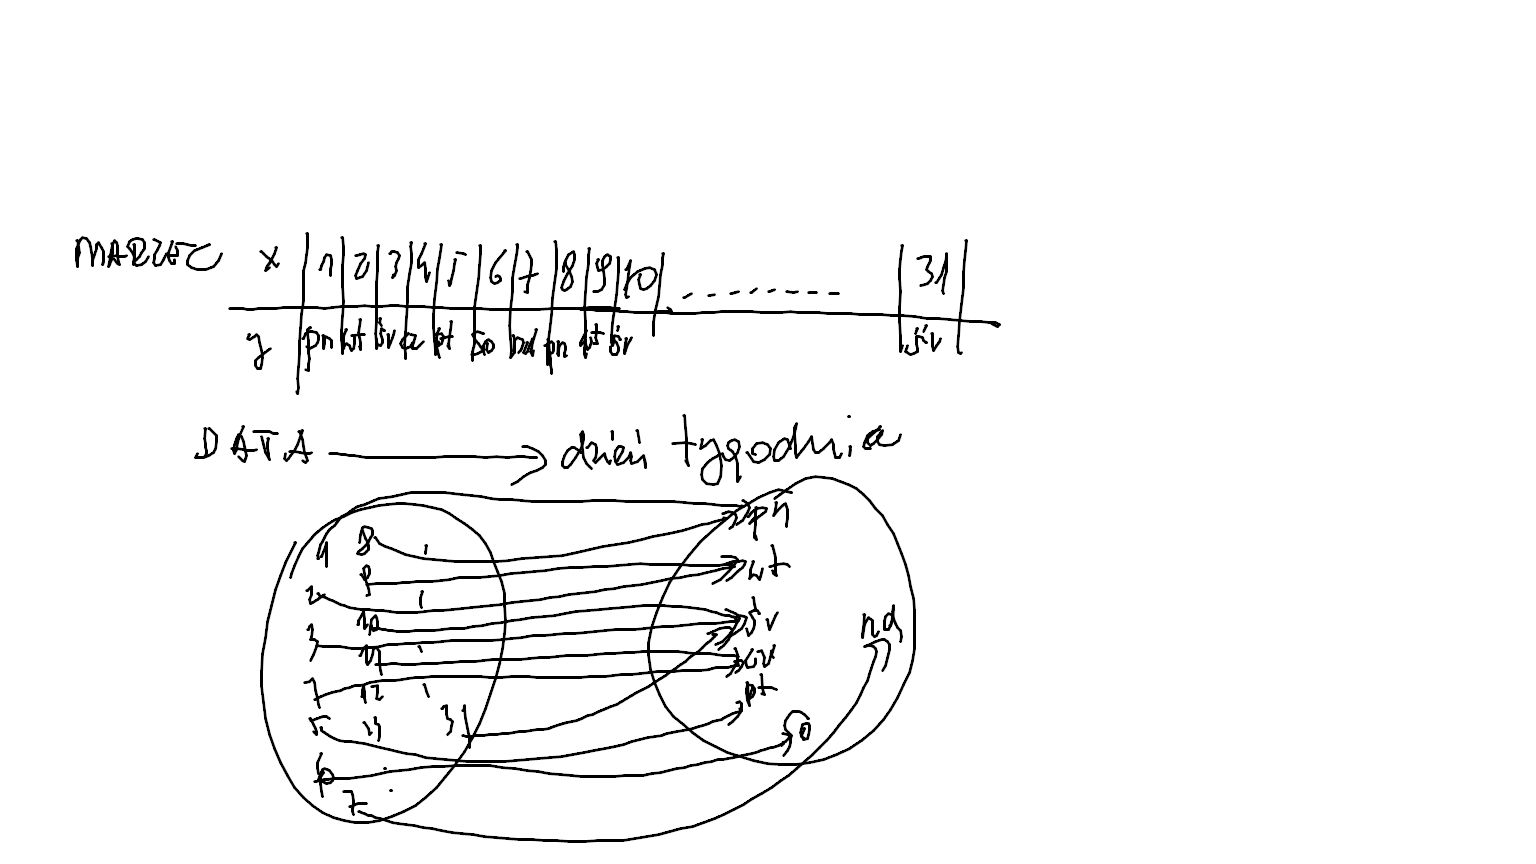 MARZEC x | 1 | 2 | 3 | 4 | 5 | 6 | 7 | 8 | 9 | 10 | ......... | 31 |
y | pn | wt | śr | cz | pt | so | nd | pn | wt | śr | | śr |
DATA → dzień tygodnia
1 8 pn
2 9 wt
3 10 śr nd
4 11 cz
12 pt
5 13 31 so
6
7